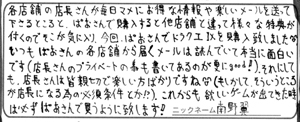 各店舗の店長さんが毎日マメにお得な情報や楽しいメールを送って
下さるところと、ぱおさんで購入すると他店舗と違って様々な特典が
付くのでそこが気に入り、今回、ぱおさんでドラクエⅨを購入致しました
いつもぱおさんの各店舗から届くメールは読んでいて本当に面白い
です(店長さんのプライベートの事も書いてあるのが更にgood!)。それにして
も、店長さんは皆親切で楽しい方ばかりですね(もしかして、そういうところ
が店長になる為の必須条件とか!?)。これからも、欲しいゲームが出てきた時
は必ずぱおさんで買うように致します! ニックネーム 南野翼